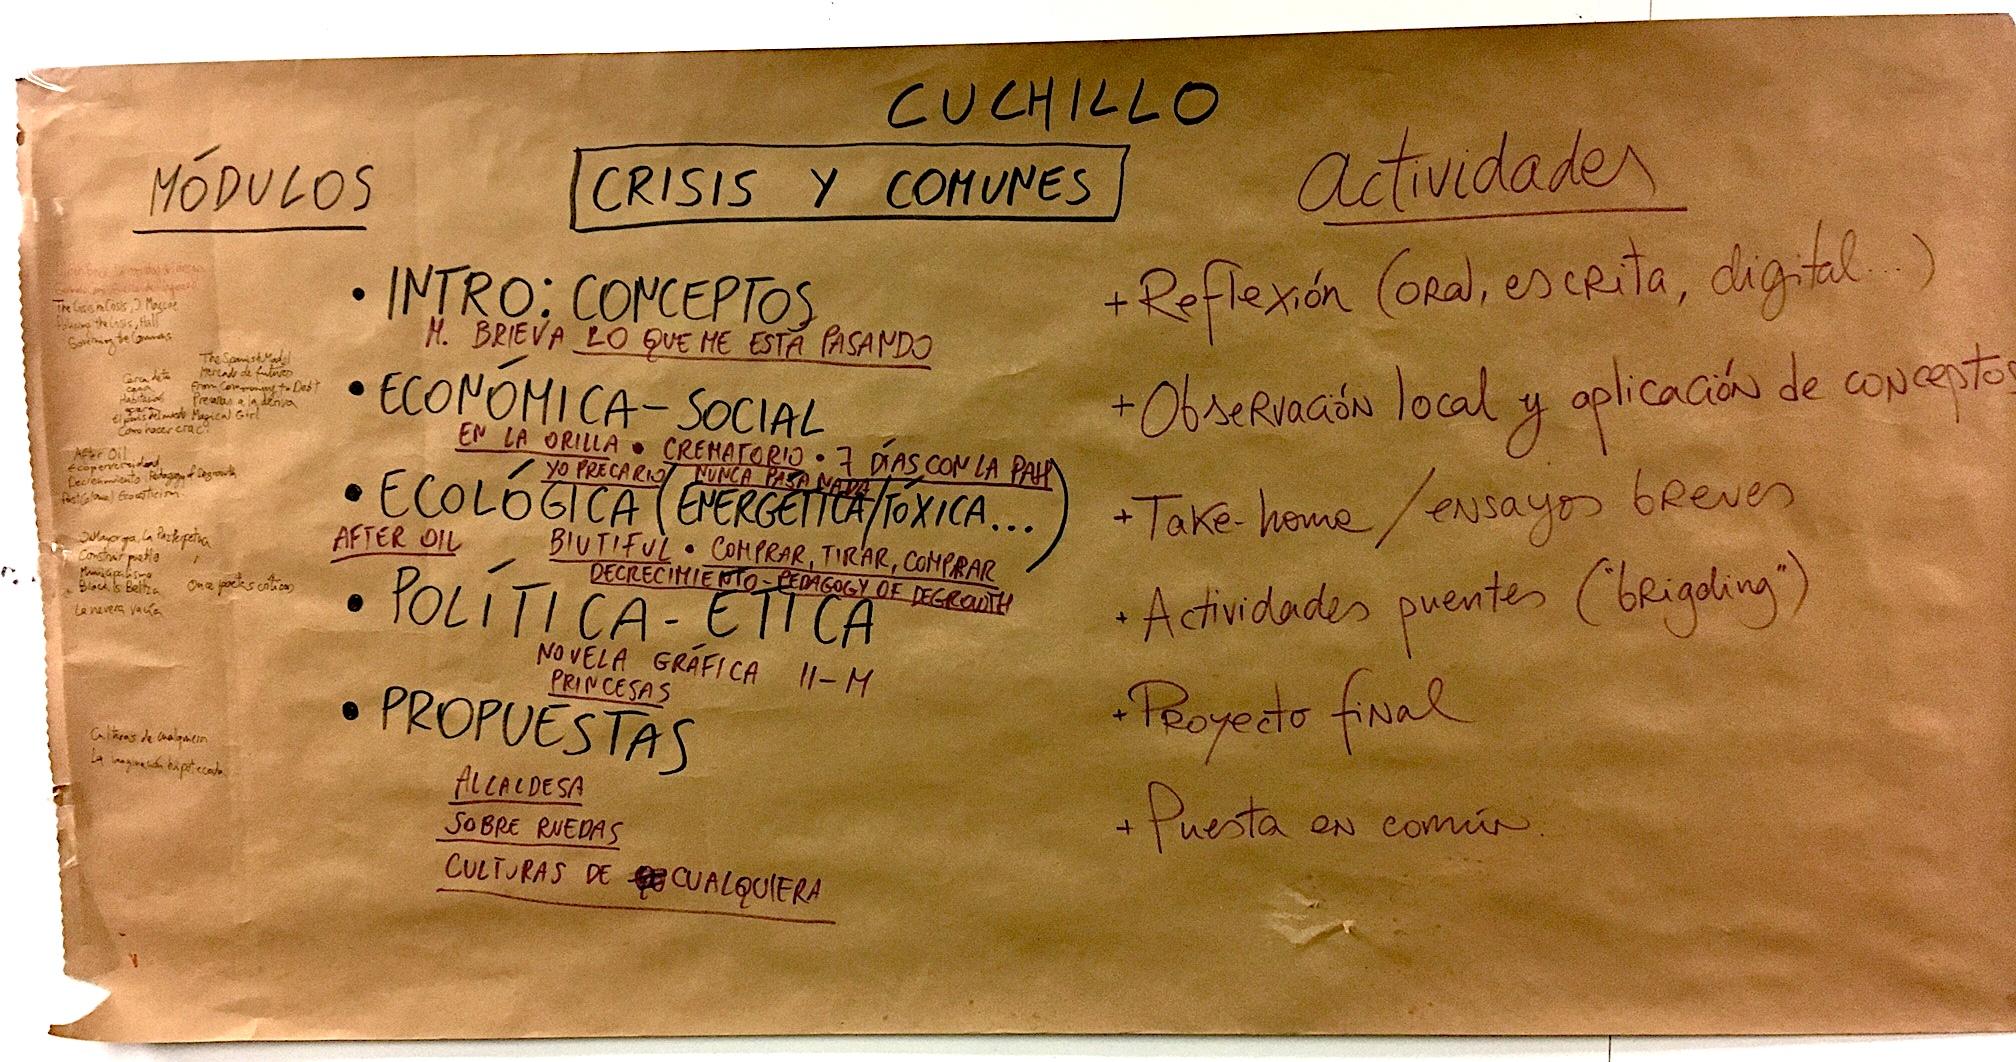 CUCHILLO
MÓDULOS
CRISIS Y COMUNES
Actividades
• INTRO: CONCEPTOS
M. BRIEVA LO QUE ME ESTÁ PASANDO
• ECONÓMICA-SOCIAL
EN LA ORILLA • CREMATORIO • 7 DÍAS CON LA PAH
YO PRECARIO / NUNCA PASA NADA
• ECOLÓGICA (ENERGÉTICA/TÓXICA...)
AFTER OIL BIUTIFUL • COMPRAR, TIRAR, COMPRAR
DECRECIMIENTO - PEDAGOGY OF DEGROWTH
• POLÍTICA - ÉTICA
NOVELA GRÁFICA 11-M
PRINCESAS
• PROPUESTAS
ALCALDESA
SOBRE RUEDAS
CULTURAS DE CUALQUIERA
+ Reflexión (oral, escrita, digital...)
+ Observación local y aplicación de conceptos
+ Take-home / ensayos breves
+ Actividades puentes ("brigding")
+ Proyecto final
+ Puesta en común.
The Crisis in Crisis, J
the Crisis, Hall
Governing the Commons
The Spanish Model
Mercado de futuros
From Commoning to Debt
Precarias a la deriva
Magical Girl
Cerca de tu
casa
Habitación
After Oil
Decrecimiento Pedagogy of Degrowth
Postglobal Ecocriticism
J Mayorga, La Paz Perpetua
Construir pueblo
Municipalismo
Black is Beltza
Once poetas críticos
La nevera vacía
Culturas de cualquiera
La imaginación hipotecada